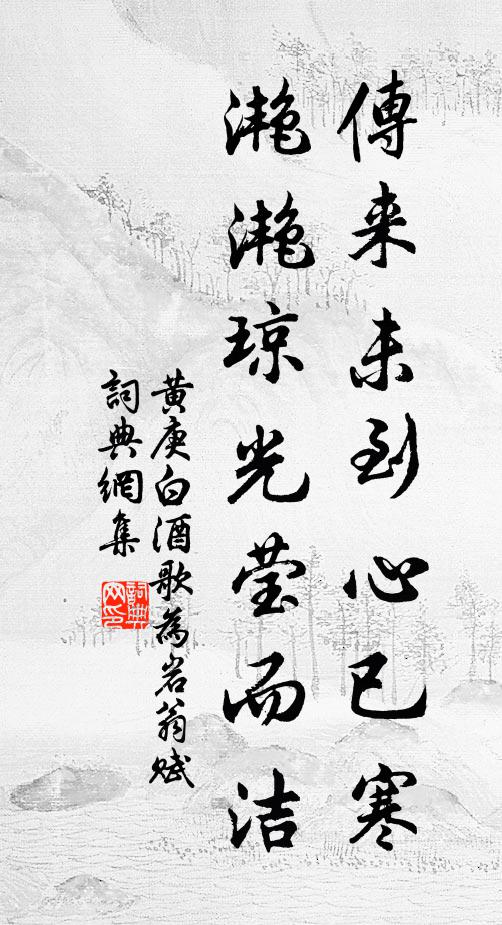 傳来未到心已寒
灔灔琼光莹而洁
黄庚白酒歌為岩翁赋
詞典網集
詞典网印